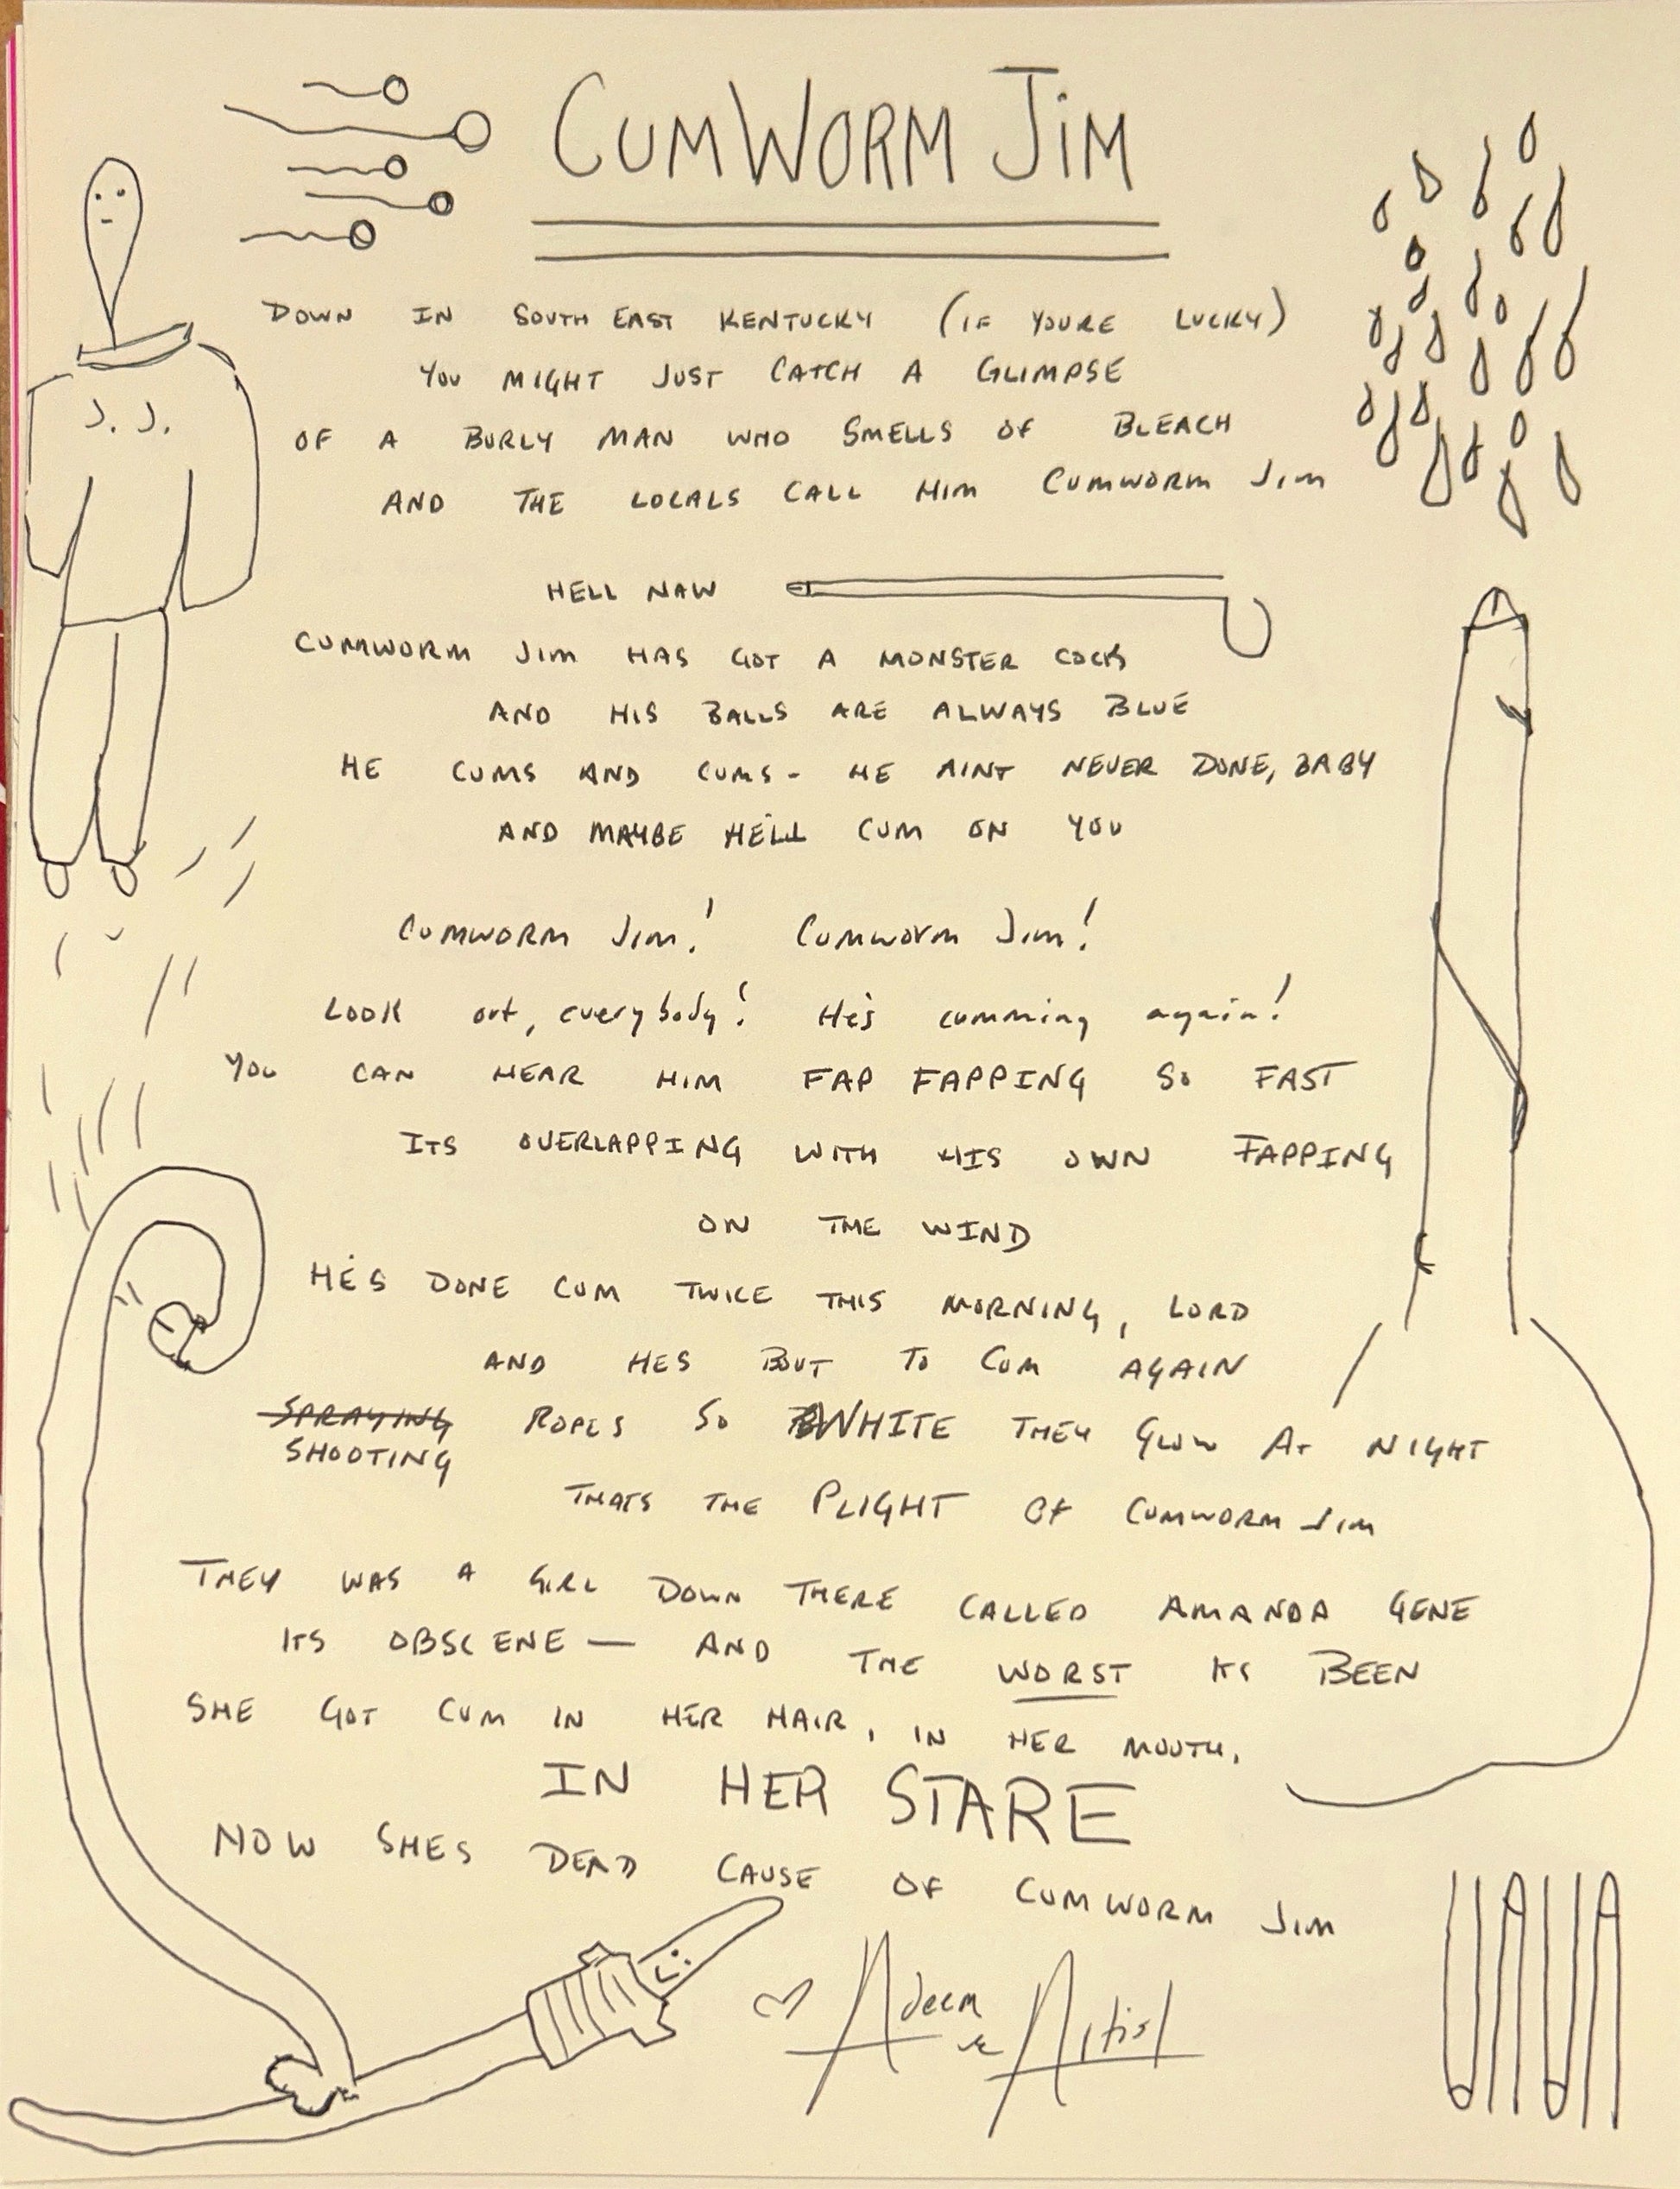 CUMWORM JIM
J. J.
DOWN IN SOUTH EAST KENTUCKY (IF YOURE LUCKY)
YOU MIGHT JUST CATCH A GLIMPSE
OF A BURLY MAN WHO SMELLS OF BLEACH
AND THE LOCALS CALL HIM CUMWORM JIM
HELL NAW
CUMWORM JIM HAS GOT A MONSTER COCK
AND HIS BALLS ARE ALWAYS BLUE
HE CUMS AND CUMS - HE AINT NEVER DONE, BABY
AND MAYBE HE'LL CUM ON YOU
CUMWORM JIM! CUMWORM JIM!
LOOK out, everybody! He's cumming again!
YOU CAN HEAR HIM FAP FAPPING SO FAST
ITS OVERLAPPING WITH HIS OWN FAPPING
ON THE WIND
HE'S DONE CUM TWICE THIS MORNING, LORD
AND HES BOUT TO CUM AGAIN
SPRAYING ROPES SO WHITE THEY GLOW AT NIGHT
SHOOTING
THATS THE PLIGHT OF CUMWORM JIM
THEY WAS A GIRL DOWN THERE CALLED AMANDA GENE
ITS OBSCENE — AND THE WORST ITS BEEN
SHE GOT CUM IN HER HAIR, IN HER MOUTH,
IN HER STARE
NOW SHES DEAD CAUSE OF CUMWORM JIM
Adeem the Artist